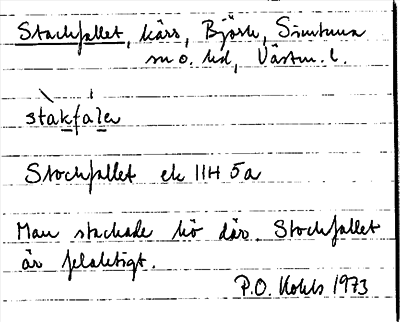 Stackfallet, kärr, Björk, Simtuna
sn o. hd, Västm. l.
stakfalen
Stockfallet ek 11H 5a
Man stackade hö där. Stockfallet
är felaktigt.
P.O. Kohls 1973